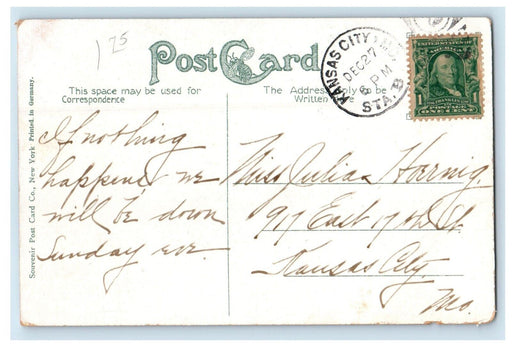 1 25
Post Card
This space may be used for
Correspondence
The Address only to be
Written
KANSAS CITY
DEC 27
6 PM
STA. B
UNITED STATES OF AMERICA
1
ONE CENT
Souvenir Post Card Co., New York Printed in Germany.
If nothing
happens we
will be down
Sunday eve.
Miss Julia Hornig
917 East 17th St
Kansas City
Mo.